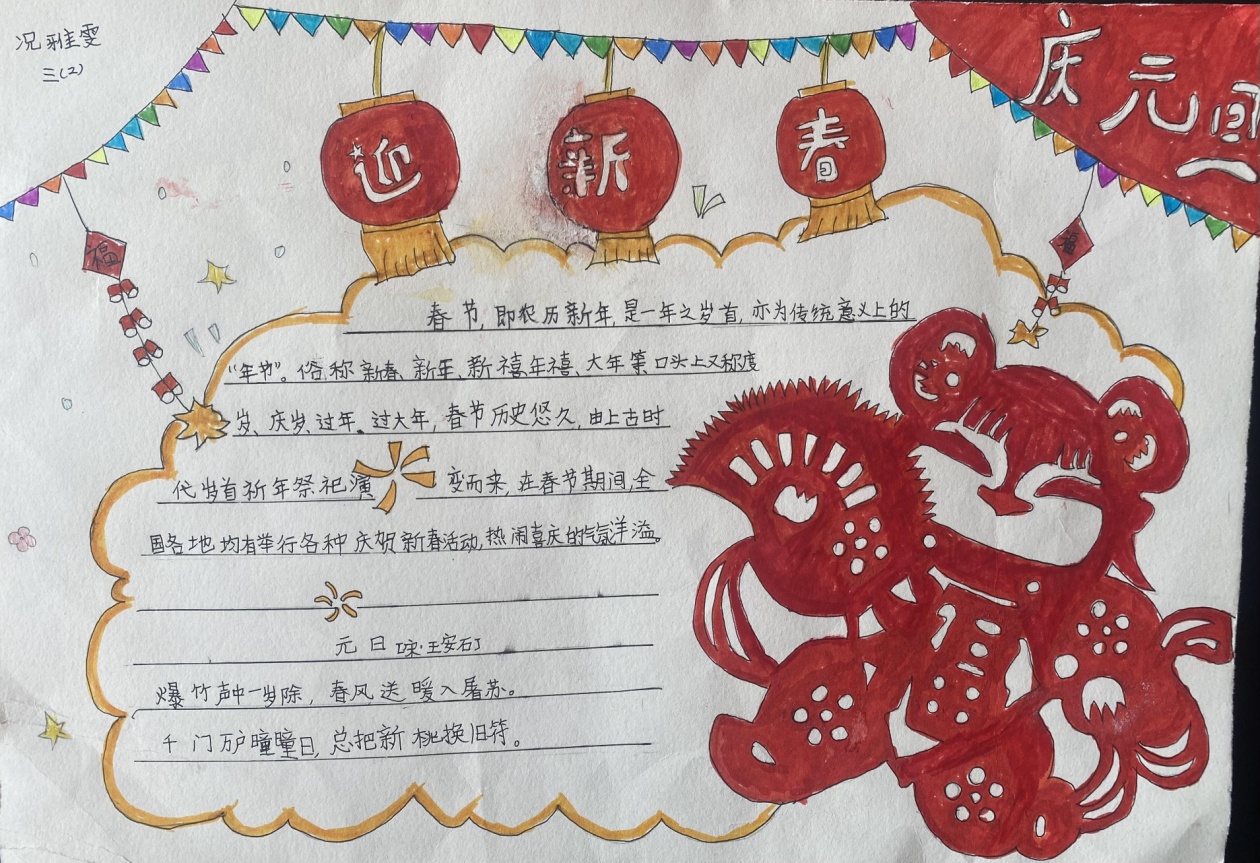 况雅雯
三(2)
迎 新 春
庆元
福
春节,即农历新年,是一年之岁首,亦为传统意义上的
“年节”。俗称新春、新年、新禧、年禧、大年等,口头上又称度
岁、庆岁、过年、过大年,春节历史悠久,由上古时
代岁首祈年祭祀演变而来,在春节期间,全
国各地均有举行各种庆贺新春活动,热闹喜庆的气氛洋溢。
元日 宋·王安石
爆竹声中一岁除,春风送暖入屠苏。
千门万户曈曈日,总把新桃换旧符。